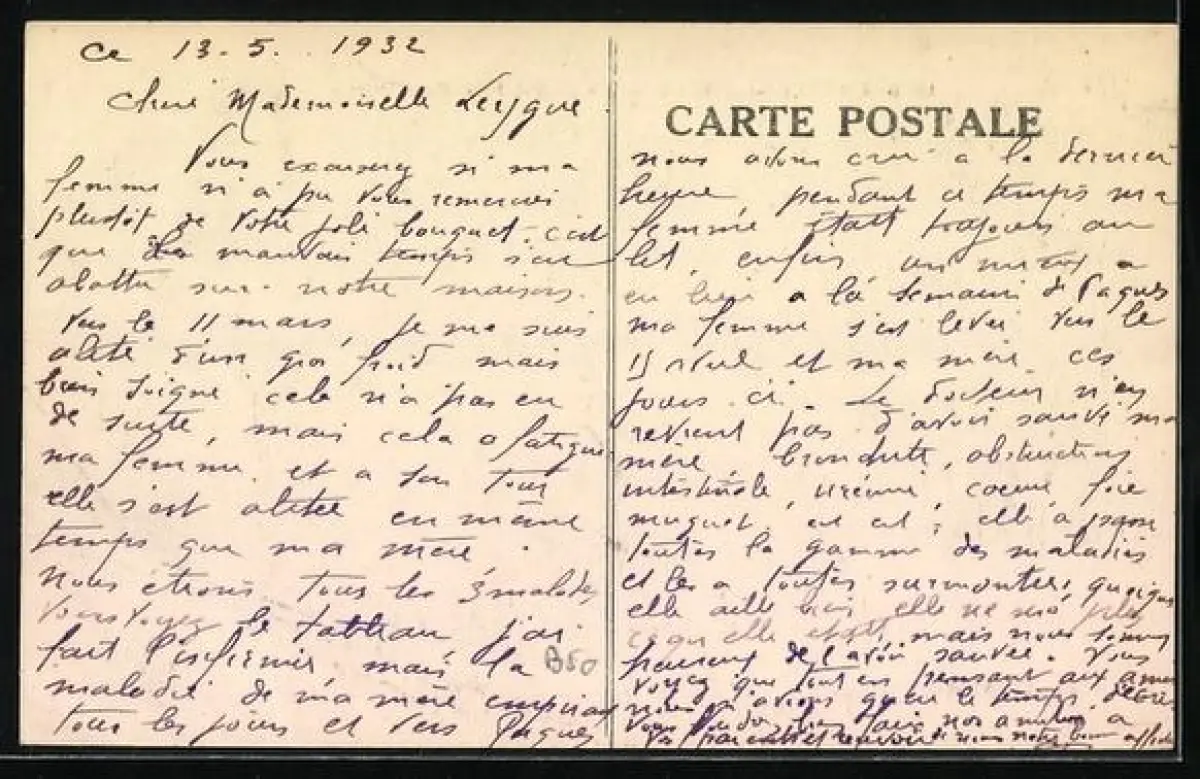 Ce 13.5. 1932
Chere Mademoiselle Leygue.
Vous excuserez si ma
femme n'a pu vous remercier
plustôt de votre joli bouquet. c'est
que les mauvais temps s'est
abattu sur notre maison.
Vers le 11 mars, je me suis
alité d'un gros froid mais
bien soigné cela n'a pas eu
de suite, mais cela a fatigué
ma femme et a son tour
elle s'est alitée en même
temps que ma mère.
Nous étions tous les 3 malades
vous voyez le tableau j'ai
fait l'infirmier mais la
maladie de ma mère empirait
tous les jours et vers Paques
B50
CARTE POSTALE
nous avons cru a la dernière
heure, pendant ce temps ma
femme était toujours au
lit, enfin un mieux a
eu lieu a la semaine de Paques
ma femme s'est levée vers le
15 avril et ma mère ces
jours ci. Le docteur n'en
revient pas d'avoir sauvé ma
mère, bronchite, obstruction
intestinale, urémie, coeur foie
muguet, ect ect, elle a passé
toutes la gamme des maladies
et les a toutes surmontées, quoique
elle aille elle ne
ce qu'elle était, mais nous sommes
heureux de l'avoir sauvée. Vous
voyez que tout en pensant aux amis
nous n'avions guère le temps d'écrire